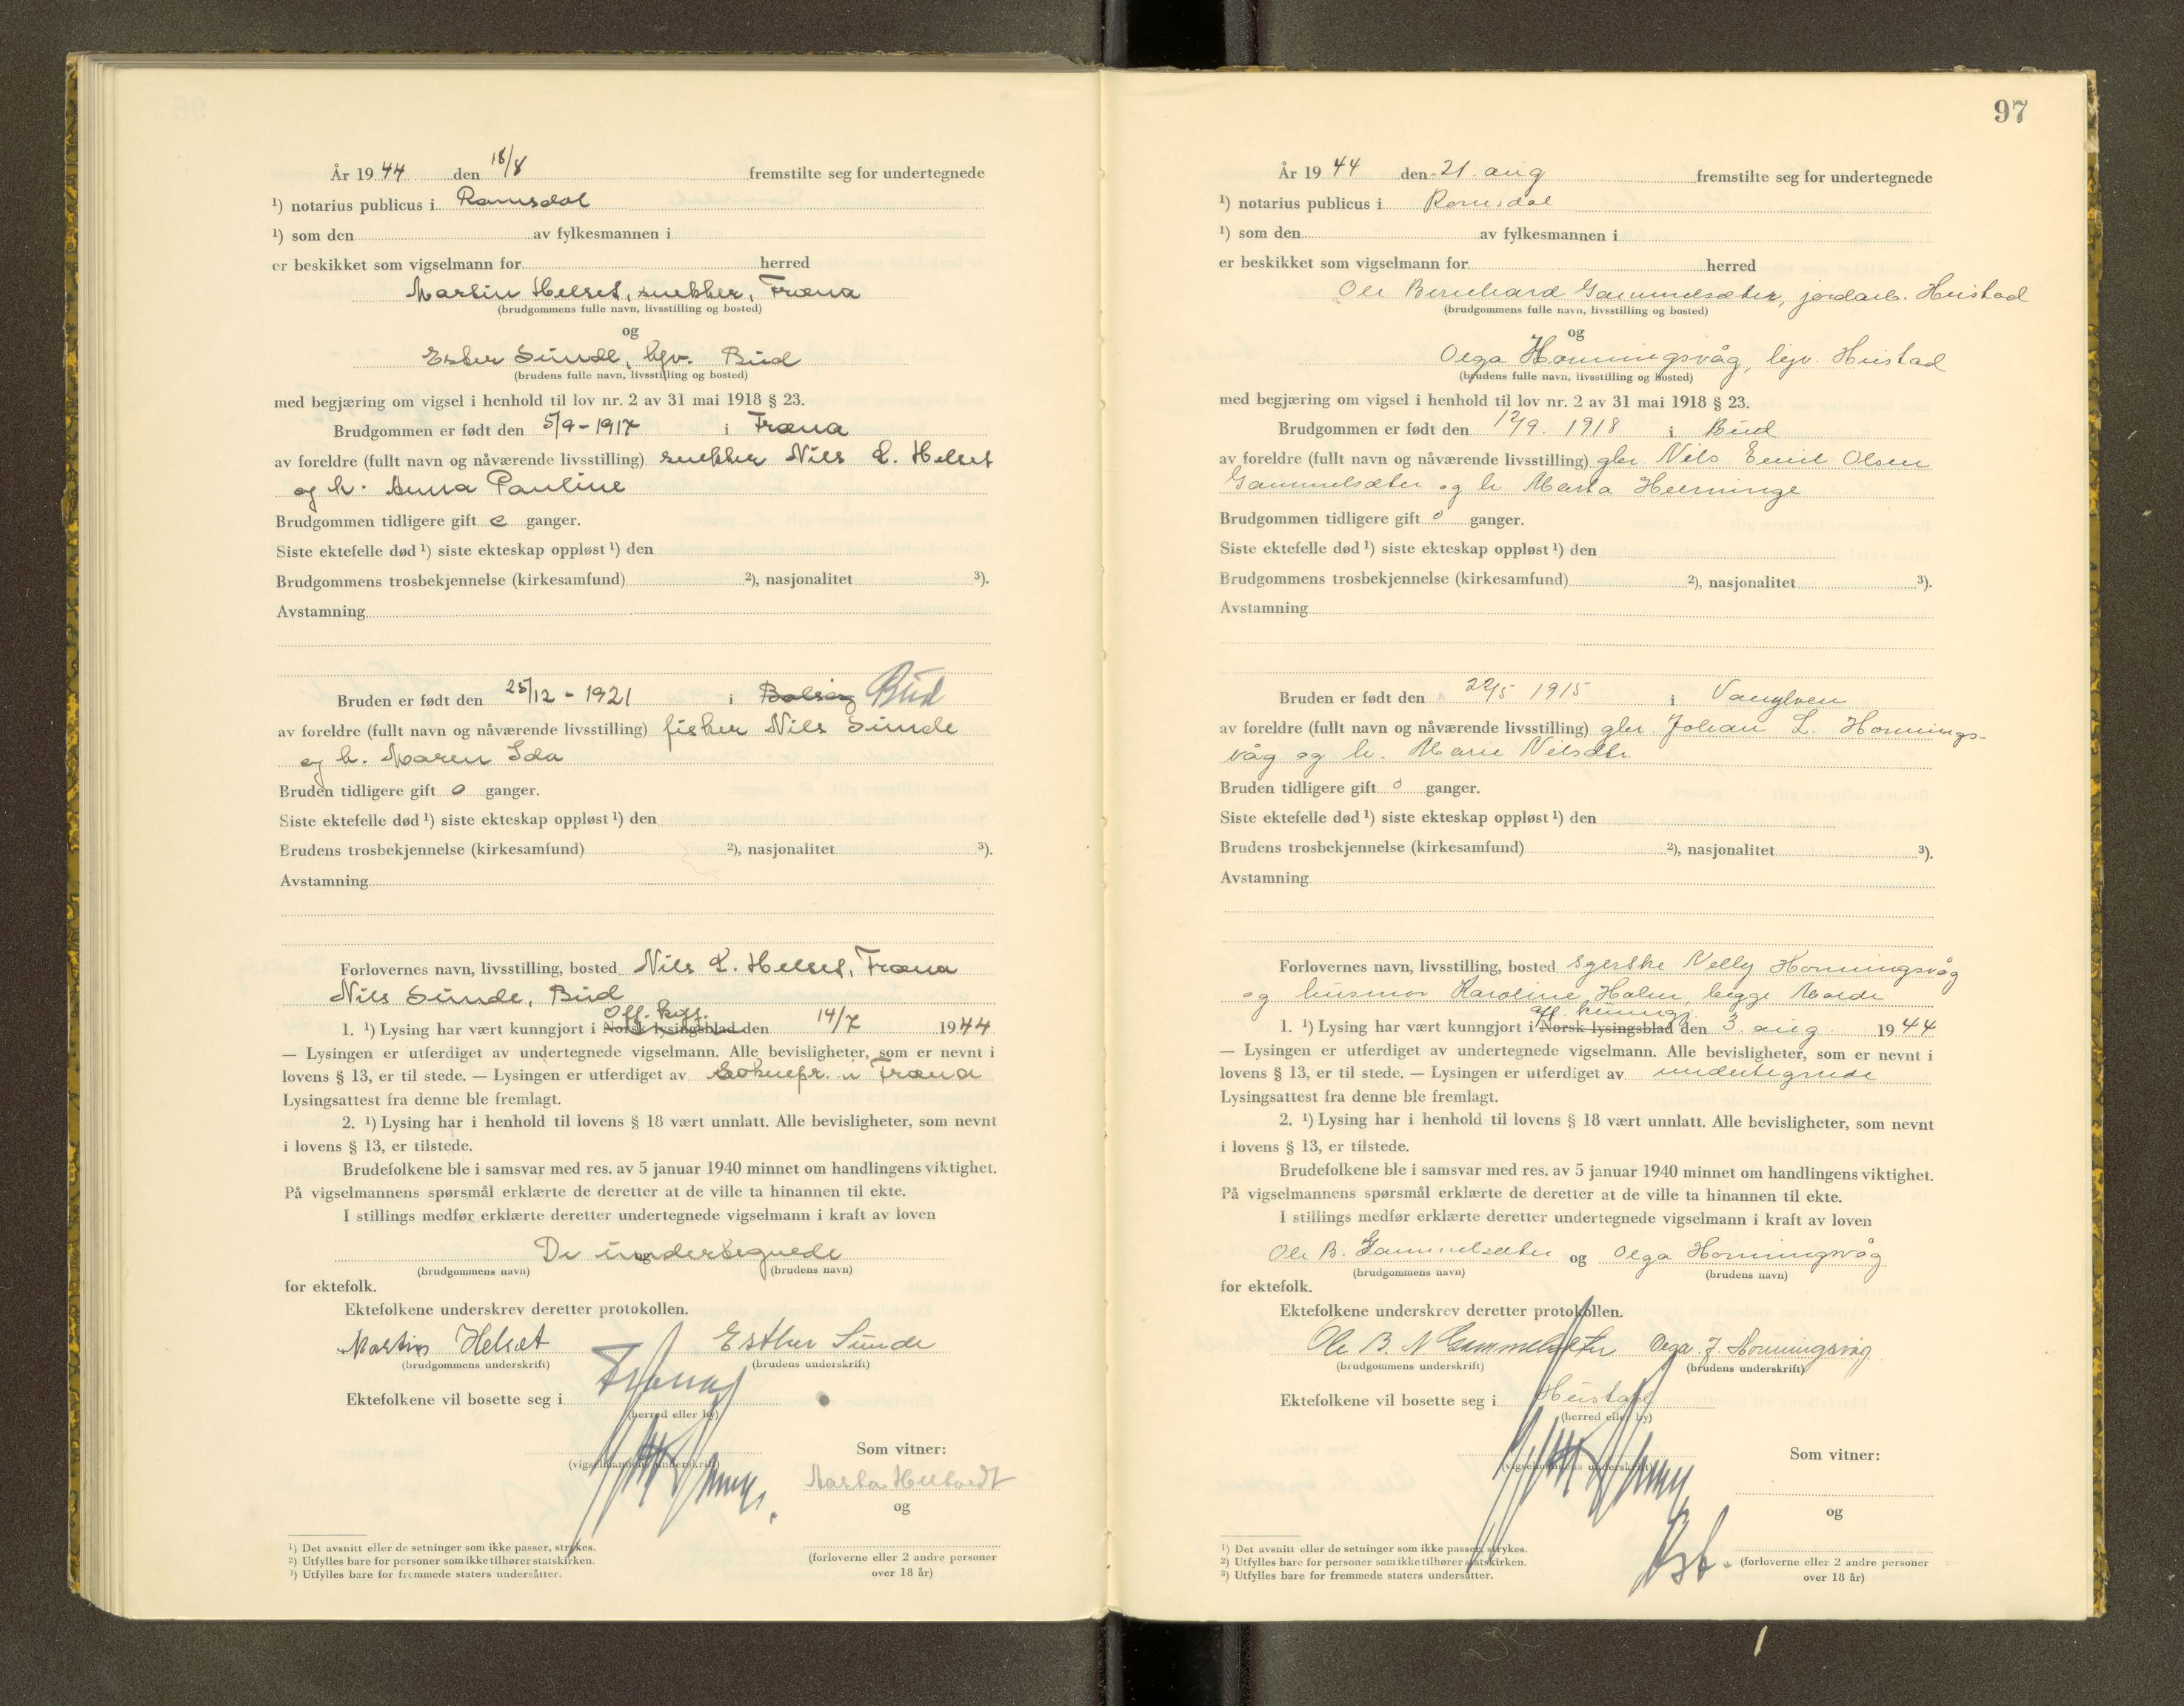 År 1944 den 18/8 fremstilte seg for undertegnede
1) notarius publicus i Romsdal
1) som den av fylkesmannen i
er beskikket som vigselmann for herred
Martin Helset, snekker, Fræna
(brudgommens fulle navn, livsstilling og bosted)
og
Ester Sunde, hjv. Bud
(brudens fulle navn, livsstilling og bosted)
med begjæring om vigsel i henhold til lov nr. 2 av 31 mai 1918 § 23.
Brudgommen er født den 5/9 - 1917 i Fræna
av foreldre (fullt navn og nåværende livsstilling) snekker Nils L. Helset
og h. Anna Pauline
Brudgommen tidligere gift 0 ganger.
Siste ektefelle død 1) siste ekteskap oppløst 1) den
Brudgommens trosbekjennelse (kirkesamfund) 2), nasjonalitet 3).
Avstamning
Bruden er født den 25/12 - 1921 i Bolsøy Bud
av foreldre (fullt navn og nåværende livsstilling) fisker Nils Sunde
og h. Maren Ida
Bruden tidligere gift 0 ganger.
Siste ektefelle død 1) siste ekteskap oppløst 1) den
Brudens trosbekjennelse (kirkesamfund) 2), nasjonalitet 3).
Avstamning
Forlovernes navn, livsstilling, bosted Nils L. Helset, Fræna
Nils Sunde, Bud
Off.
1. 1) Lysing har vært kunngjort i Norsk lysingsblad den 14/7 1944
— Lysingen er utferdiget av undertegnede vigselmann. Alle bevisligheter, som er nevnt i
lovens § 13, er til stede. — Lysingen er utferdiget av Soknepr. i Fræna
Lysingsattest fra denne ble fremlagt.
2. 1) Lysing har i henhold til lovens § 18 vært unnlatt. Alle bevisligheter, som nevnt
i lovens § 13, er tilstede.
Brudefolkene ble i samsvar med res. av 5 januar 1940 minnet om handlingens viktighet.
På vigselmannens spørsmål erklærte de deretter at de ville ta hinannen til ekte.
I stillings medfør erklærte deretter undertegnede vigselmann i kraft av loven
De undertegnede
og
(brudgommens navn) (brudens navn)
for ektefolk.
Ektefolkene underskrev deretter protokollen.
Martin Helset Esther Sunde
(brudgommens underskrift) (brudens underskrift)
Ektefolkene vil bosette seg i Fræna
(herred eller by)
Som vitner:
(vigselmannens underskrift)
og
1) Det avsnitt eller de setninger som ikke passer, strykes.
2) Utfylles bare for personer som ikke tilhører statskirken.
3) Utfylles bare for fremmede staters undersåtter.
(forloverne eller 2 andre personer
over 18 år)
97
År 1944 den 21. aug fremstilte seg for undertegnede
1) notarius publicus i Romsdal
1) som den av fylkesmannen i
er beskikket som vigselmann for herred
Ole Bernhard Gammelsæter, jordarb. Hustad
(brudgommens fulle navn, livsstilling og bosted)
og
Olga Honningsvåg, hjv. Hustad
(brudens fulle navn, livsstilling og bosted)
med begjæring om vigsel i henhold til lov nr. 2 av 31 mai 1918 § 23.
Brudgommen er født den 12/9. 1918 i Bud
av foreldre (fullt navn og nåværende livsstilling) gbr Nils Emil Olsen
Gammelsæter og h Marta
Brudgommen tidligere gift 0 ganger.
Siste ektefelle død 1) siste ekteskap oppløst 1) den
Brudgommens trosbekjennelse (kirkesamfund) 2), nasjonalitet 3).
Avstamning
Bruden er født den 22/5 1915 i Vanylven
av foreldre (fullt navn og nåværende livsstilling) gbr Johan L. Honnings-
våg og h. Marie Nilsdtr.
Bruden tidligere gift 0 ganger.
Siste ektefelle død 1) siste ekteskap oppløst 1) den
Brudens trosbekjennelse (kirkesamfund) 2), nasjonalitet 3).
Avstamning
Forlovernes navn, livsstilling, bosted syerske Nelly Honningsvåg
og husmor Karoline Holm, begge Molde
off. kunngj.
1. 1) Lysing har vært kunngjort i Norsk lysingsblad den 3. aug 1944
— Lysingen er utferdiget av undertegnede vigselmann. Alle bevisligheter, som er nevnt i
lovens § 13, er til stede. — Lysingen er utferdiget av undertegnede
Lysingsattest fra denne ble fremlagt.
2. 1) Lysing har i henhold til lovens § 18 vært unnlatt. Alle bevisligheter, som nevnt
i lovens § 13, er tilstede.
Brudefolkene ble i samsvar med res. av 5 januar 1940 minnet om handlingens viktighet.
På vigselmannens spørsmål erklærte de deretter at de ville ta hinannen til ekte.
I stillings medfør erklærte deretter undertegnede vigselmann i kraft av loven
Ole B. Gammelsæter og Olga Honningsvåg
(brudgommens navn) (brudens navn)
for ektefolk.
Ektefolkene underskrev deretter protokollen.
Ole B. N Gammelsæter Olga J. Honningsvåg
(brudgommens underskrift) (brudens underskrift)
Ektefolkene vil bosette seg i Hustad
(herred eller by)
Som vitner:
(vigselmannens underskrift)
og
1) Det avsnitt eller de setninger som ikke passer, strykes.
2) Utfylles bare for personer som ikke tilhører statskirken.
3) Utfylles bare for fremmede staters undersåtter.
(forloverne eller 2 andre personer
over 18 år)